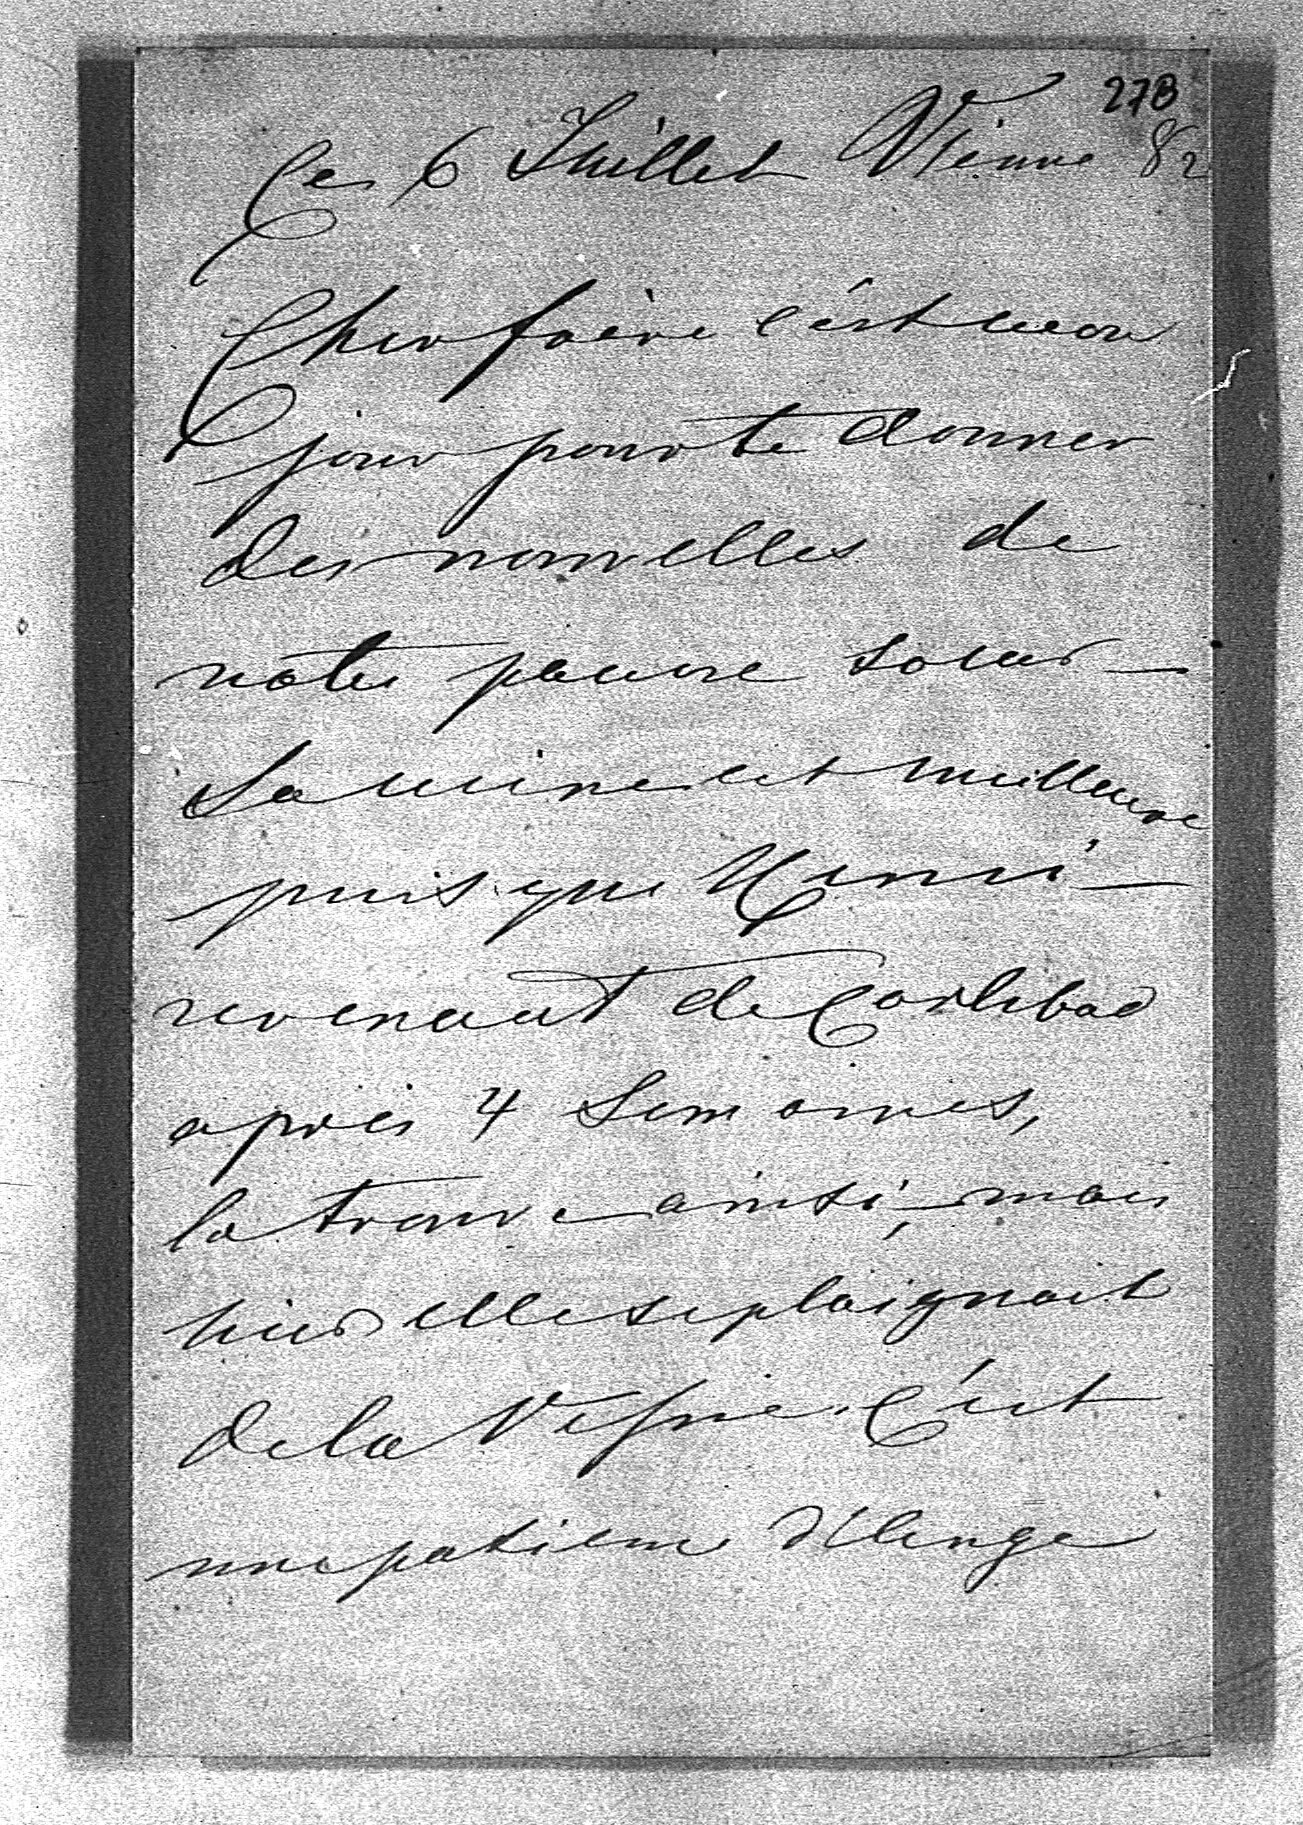 27B
Ce 6 Juillet Vienne 82
Cher frère c'est mon
jour pour te donner
des nouvelles de
notre pauvre soeur –
Sa mine est meilleure
puisque Henri –
revenant de Carlsbad
après 4 Semaines,
la trouve ainsi, mais
hier elle se plaignait
de la Vessie. C'est
une patiente d'Ange